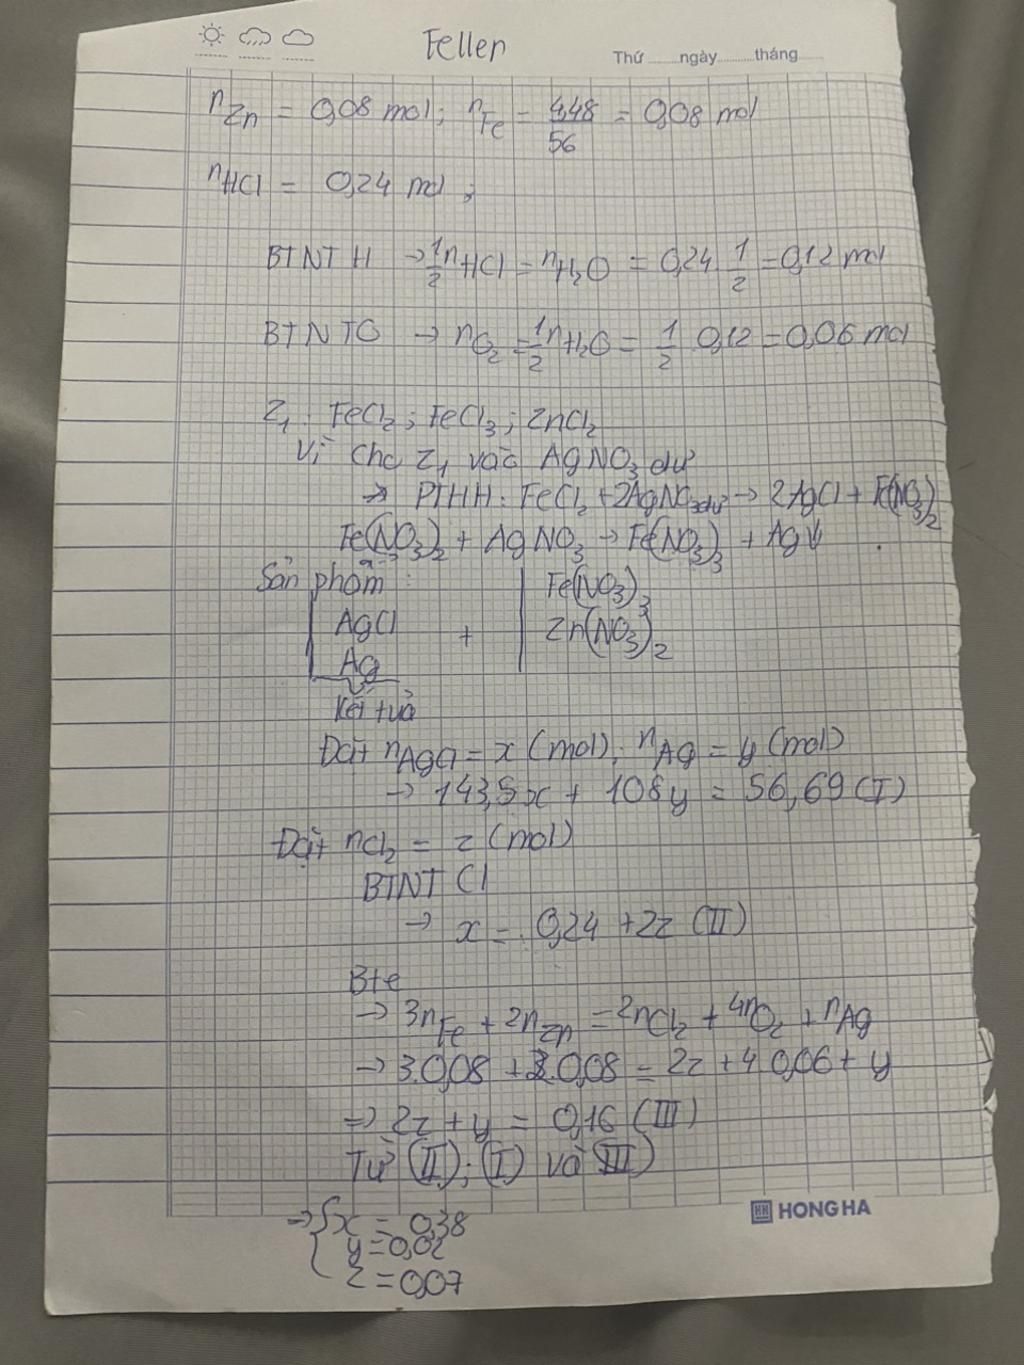 Feller
Thứ ........ngày...........tháng......
nZn = 0,08 mol; nFe = 4,48/56 = 0,08 mol
nHCl = 0,24 mol ;
BTNT H → 1/2 nHCl = nH2O = 0,24 . 1/2 = 0,12 mol
BTNT O → nO2 = 1/2 nH2O = 1/2 . 0,12 = 0,06 mol
Z1 : FeCl2 ; FeCl3 ; ZnCl2
Vì cho Z1 vào AgNO3 dư
→ PTHH : FeCl2 + 2AgNO3 dư → 2AgCl + Fe(NO3)2
Fe(NO3)2 + AgNO3 → Fe(NO3)3 + Ag↓
Sản phẩm :
AgCl + Fe(NO3)3
Ag Zn(NO3)2
Kết tủa
Đặt nAgCl = x (mol); nAg = y (mol)
→ 143,5x + 108y = 56,69 (I)
Đặt nCl2 = z (mol)
BTNT Cl
→ x = 0,24 + 2z (II)
Bte
→ 3nFe + 2nZn = 2nCl2 + 4nO2 + nAg
→ 3.0,08 + 2.0,08 = 2z + 4.0,06 + y
⇒ 2z + y = 0,16 (III)
Từ (II); (I) và (III)
⇒ { x = 0,38
y = 0,02
z = 0,07
HH HONG HA